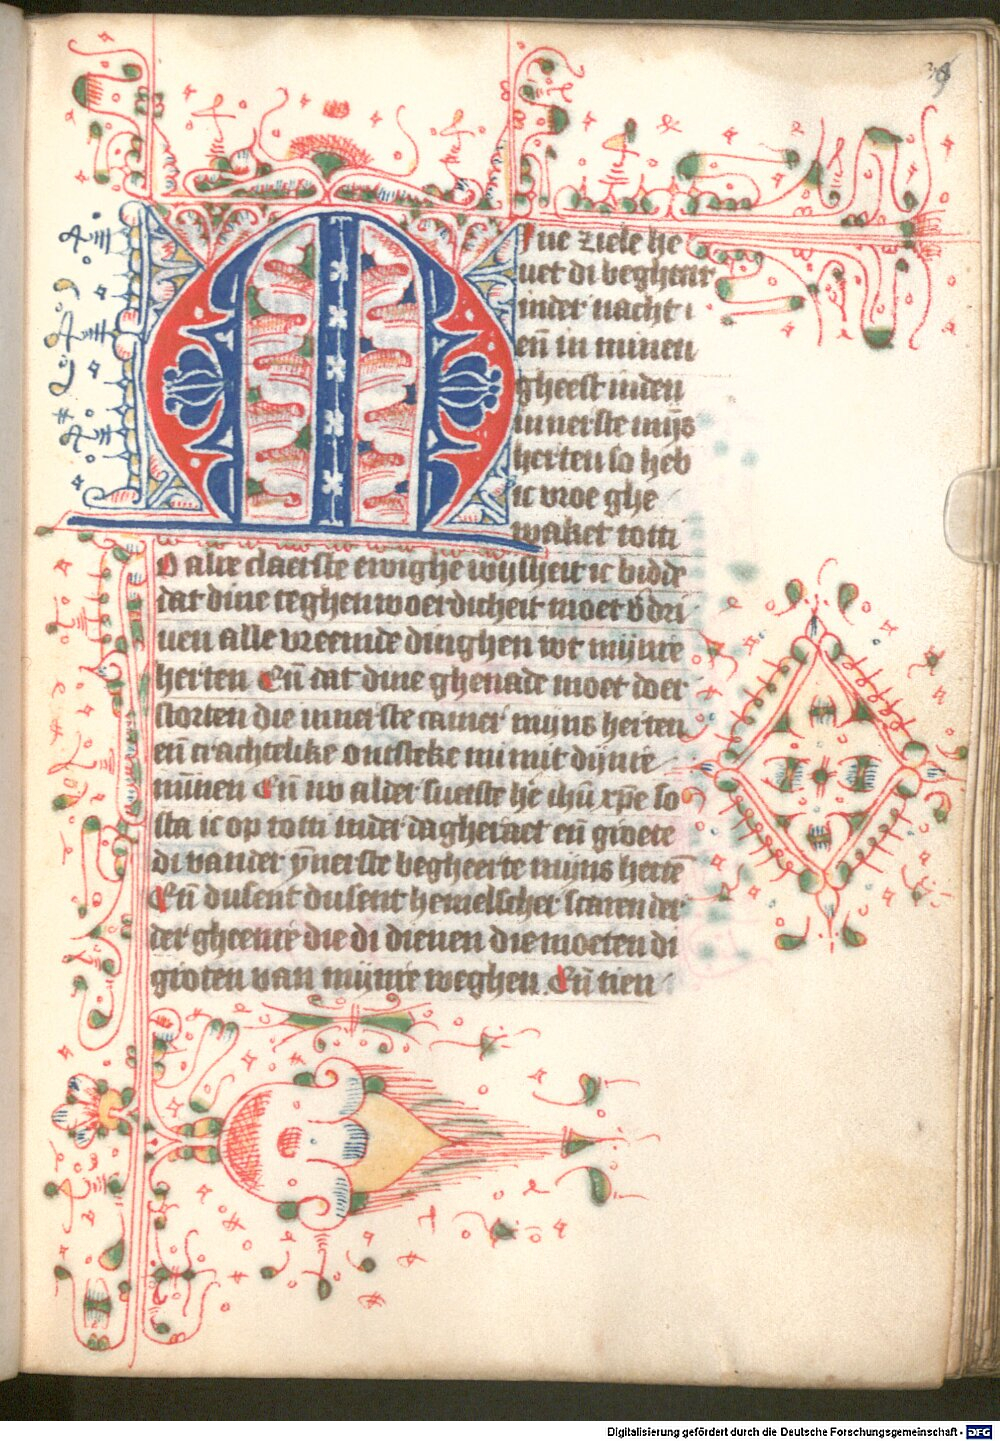 Mijne ziele he
uet di begheert
inder nacht
en̄ in minen
gheest inden
innerste mijs
herten so heb
ic vroe ghe
waket totti
O alre claerste ewighe wijsheit ic bidde
dat dine teghenwoerdicheit moet v̄ dri
uen alle vreemde dinghen wt mijnre
herten En̄ dat dine ghenade moet doer
storten die innerste camer mijns herten
en̄ crachtelike ontsteke mi mit dijnre
mīnen En̄ nv alder suetste he ihū xp̄e so
sta ic op totti inder dagheraet en̄ groete
di vander ȳnerste begheerte mijns hertē
En̄ dusent dusent hemelscher scaren der
der gheenre die di dienen die moeten di
groten van mijnre weghen. En̄ tien
Digitalisierung gefördert durch die Deutsche Forschungsgemeinschaft - DFG